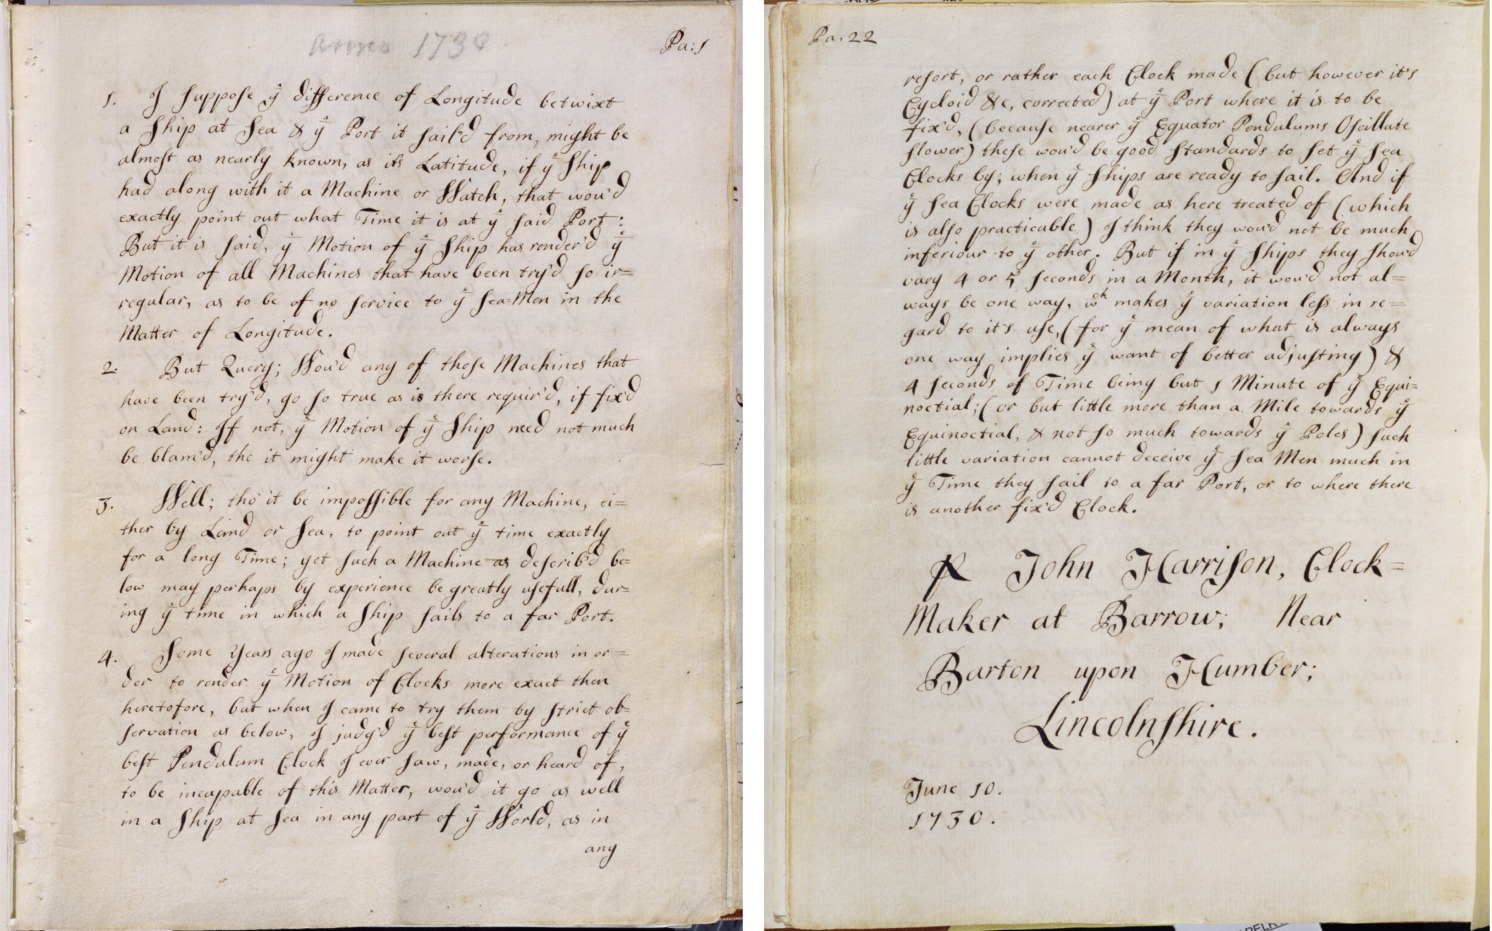 Anno 1730
Pa: 1
1. I suppose yͤ difference of Longitude betwixt
a Ship at Sea & yͤ Port it sail'd from, might be
almost as nearly known, as its Latitude, if yͤ Ship
had along with it a Machine or Watch, that wou'd
exactly point out what Time it is at yͤ said Port:
But it is said, yͤ Motion of yͤ Ship has render'd yͤ
Motion of all Machines that have been try'd so ir=
regular, as to be of no service to yͤ Sea-Men in the
Matter of Longitude.
2. But Query; Wou'd any of those Machines that
have been try'd, go so true as is there requir'd, if fix'd
on Land: If not, yͤ Motion of yͤ Ship need not much
be blam'd, tho it might make it worse.
3. Well; tho' it be impossible for any Machine, ei=
ther by Land or Sea, to point out yͤ time exactly
for a long Time; yet such a Machine as describ'd be=
low may perhaps by experience be greatly usefull, dur=
ing yͤ time in which a Ship sails to a far Port.
4. Some Years ago I made several alterations in or=
der to render yͤ Motion of Clocks more exact then
heretofore, but when I came to try them by strict ob=
servation as below, I judg'd yͤ best performance of yͤ
best Pendulum Clock I ever saw, made, or heard of,
to be incapable of this Matter, wou'd it go as well
in a Ship at Sea in any part of yͤ World, as in
any
Pa. 22
resort, or rather each Clock made (but however it's
Cycloid &c, corrected) at yͤ Port where it is to be
fix'd, (because nearer yͤ Equator Pendulums Oscillate
slower) these wou'd be good Standards to set yͤ Sea
Clocks by; when yͤ Ships are ready to sail. And if
yͤ Sea Clocks were made as here treated of (which
is also practicable) I think they wou'd not be much
inferiour to yͤ other. But if in yͤ Ships they shou'd
vary 4 or 5 Seconds in a Month, it wou'd not al=
ways be one way, wᶜʰ makes yͤ variation less in re=
gard to it's use, (for yͤ mean of what is always
one way, implies yͤ want of better adjusting) &
4 Seconds of Time being but 1 Minute of yͤ Equi=
noctial; (or but little more than a Mile towards yͤ
Equinoctial, & not so much towards yͤ Poles) such
little variation cannot deceive yͤ Sea Men much in
yͤ Time they sail to a far Port, or to where there
is another fix'd Clock.
John Harrison, Clock=
Maker at Barrow; Near
Barton upon Humber;
Lincolnshire.
June 10.
1730.